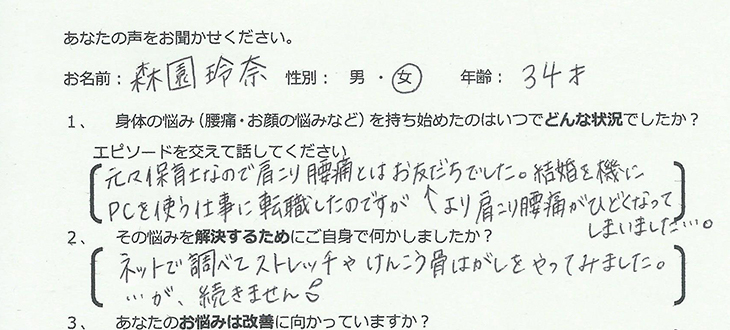 あなたの声をお聞かせください。
お名前： 森園 玲奈 性別： 男 ・ 女 年齢： 34才
１、 身体の悩み（腰痛・お顔の悩みなど）を持ち始めたのはいつでどんな状況でしたか？
エピソードを交えて話してください
元々保育士なので肩こり腰痛とはお友だちでした。結婚を機に
PCを使う仕事に転職したのですが ↑より肩こり腰痛がひどくなって
しまいました…。
２、 その悩みを解決するためにご自身で何かしましたか？
ネットで調べてストレッチやけんこう骨はがしをやってみました。
…が、続きません
３、 あなたのお悩みは改善に向かっていますか？